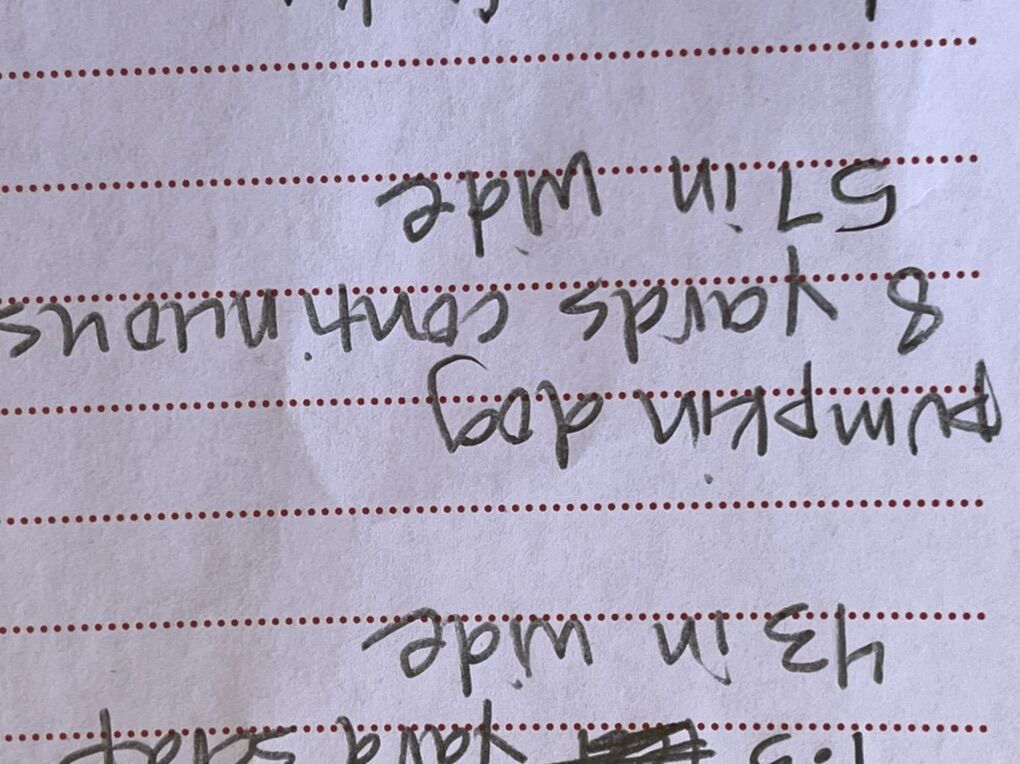 1.5 yard scrap
43 in wide
pumpkin dog
8 yards continuous
57 in wide